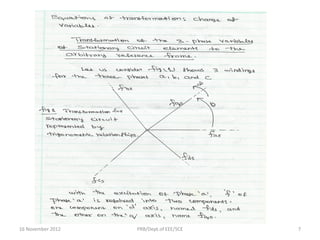 Equations of transformation: change of
variables.
Transformation of the 3-phase variables
of Stationary circuit elements to the
arbitrary reference frame.
Let us consider fig.1 shows 3 windings
for the three phases a, b, and c.
fbs
fig.1 Transformation for
Stationary circuit
represented by
trigonometric relationships
fqs
θ
fas
fds
fcs
with the excitation of phase 'a', 'f' of
phase 'a' is resolved into two components.
one component on 'd' axis, named fds, and
the other on the 'q' axis, name fqs.
16 November 2015
PRB/Dept.of EEE/SCE
7